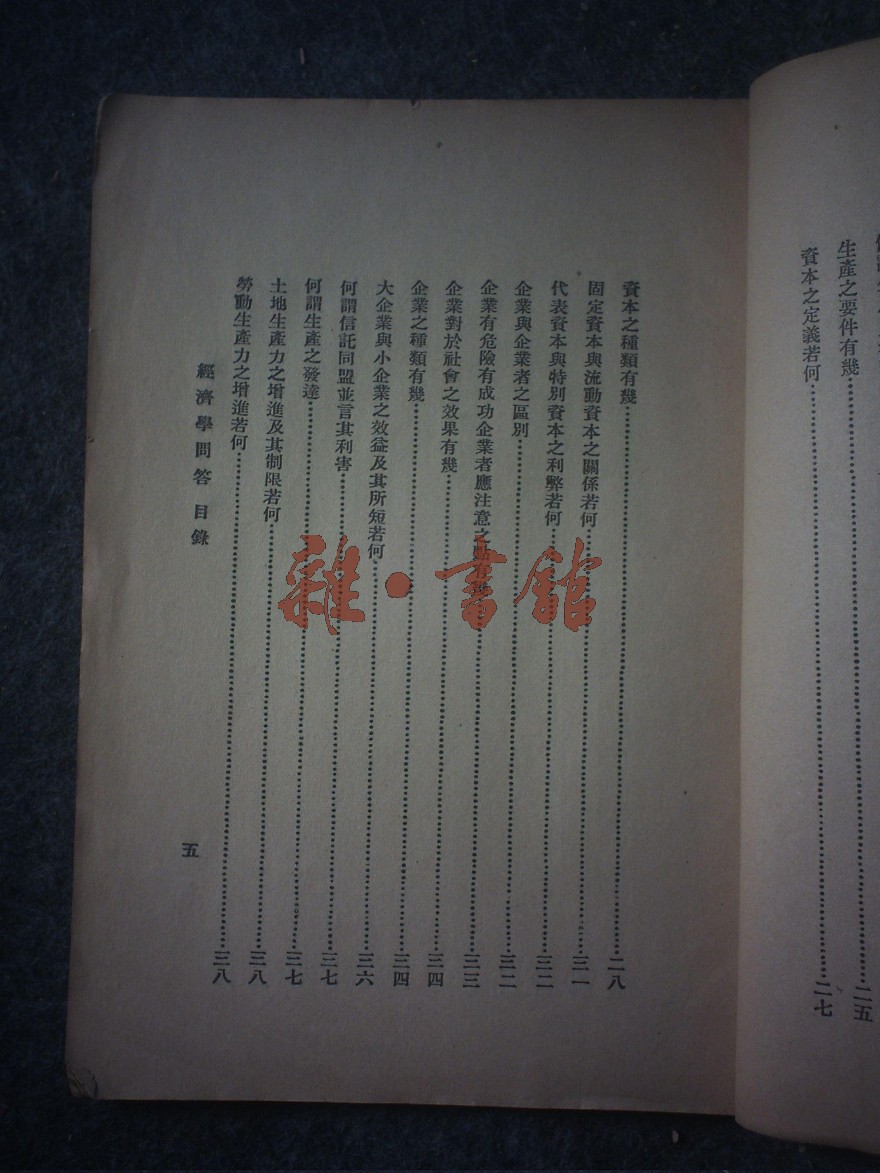 生產之要件有幾⋯⋯二五
資本之定義若何⋯⋯二七
資本之種類有幾⋯⋯二八
固定資本與流動資本之關係若何⋯⋯三一
代表資本與特別資本之利弊若何⋯⋯三二
企業與企業者之區別⋯⋯三二
企業有危險有成功企業者應注意之點有幾⋯⋯三三
企業對於社會之效果有幾⋯⋯三四
企業之種類有幾⋯⋯三四
大企業與小企業之效益及其所短若何⋯⋯三六
何謂信託同盟並言其利害⋯⋯三七
何謂生產之發達⋯⋯三七
土地生產力之增進及其制限若何⋯⋯三八
勞動生產力之增進若何⋯⋯三八
經濟學問答 目錄
五
雜·書館